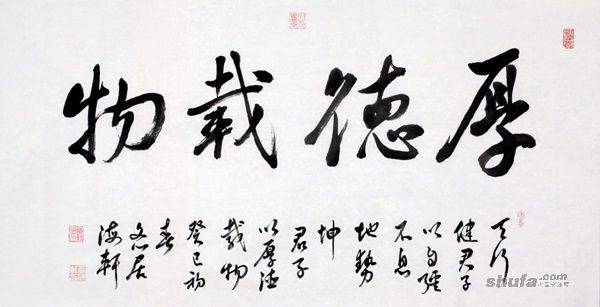 厚德載物
天行
健君子
以自強
不息
地勢
坤
君子
以厚德
載物
癸巳初
春
居
海軒
shufa.com